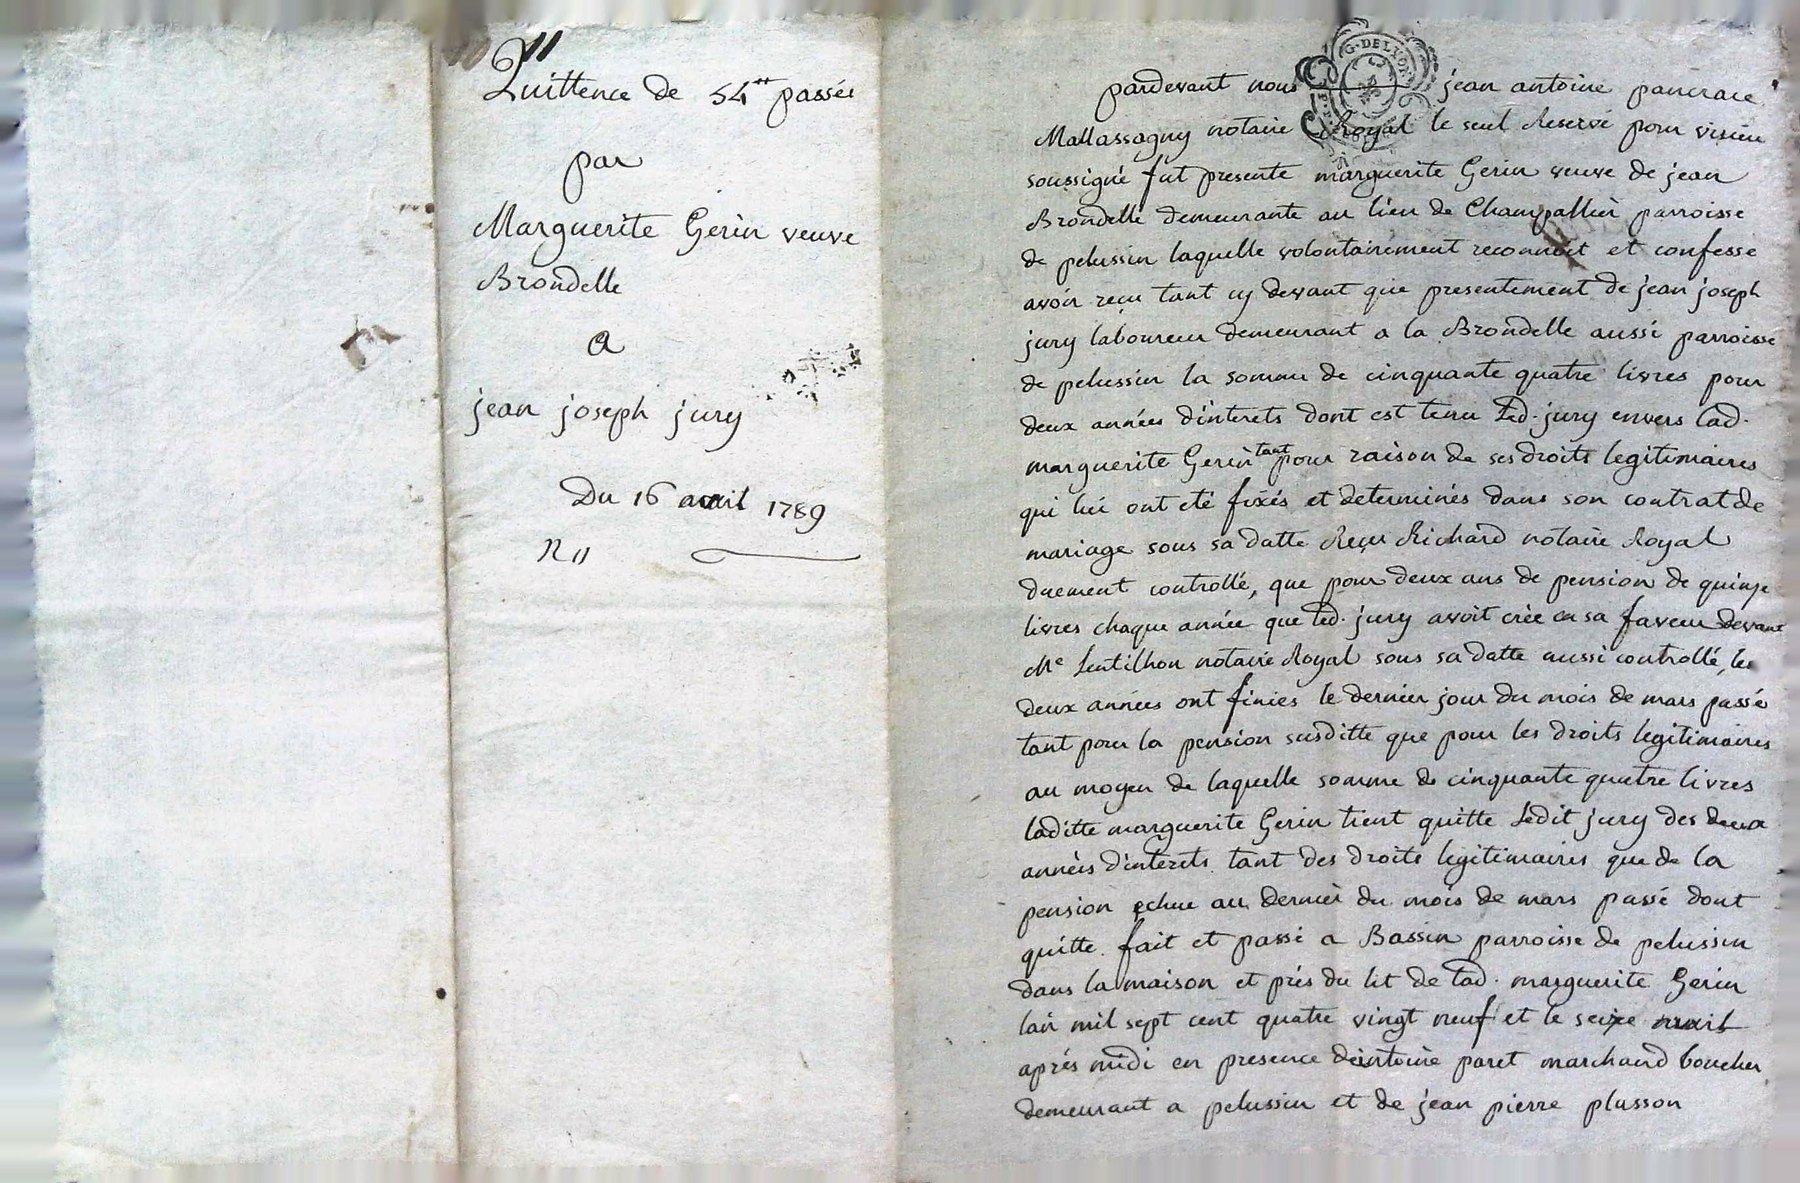 11
Quittence de 54<sup>tt</sup> passée
par
Marguerite Gerin veuve
Brondelle
a
jean joseph jury
Du 16 avril 1789
N 11
G. DE LYON
pardevant nous jean antoine pancrace
Mallassagny notaire Royal le seul Reservé pour virieu
soussigné fut presente marguerite Gerin veuve de jean
Brondelle demeurante au lieu de Champallier parroisse
de pelussin laquelle volontairement reconnoit et confesse
avoir reçu tant cy devant que presentement de jean joseph
jury laboureur demeurant a la Brondelle aussi parroisse
de pelussin la somme de cinquante quatre livres pour
deux années d'interets dont est tenu Led. jury envers lad.
marguerite Gerin tant pour raison de ses droits legitimaires
qui lui ont eté fixés et determinés dans son contrat de
mariage sous sa datte Reçu Richard notaire Royal
duement controllé, que pour deux ans de pension de quinze
livres chaque année que led. jury avoit crée en sa faveur devant
Me Lentilhon notaire Royal sous sa datte aussi controllé, les
deux années ont finies le dernier jour du mois de mars passé
tant pour la pension susditte que pour les droits legitimaires
au moyen de laquelle somme de cinquante quatre livres
laditte marguerite Gerin tient quitte Ledit jury des deux
années d'interets tant des droits legitimaires que de la
pension echue au dernier du mois de mars passé dont
quitte. fait et passé a Bassin parroisse de pelussin
dans la maison et prés du lit de lad. marguerite Gerin
lan mil sept cent quatre vingt neuf et le seize avril
aprés midi en presence dentoine paret marchand boucher
demeurant a pelussin et de jean pierre plasson